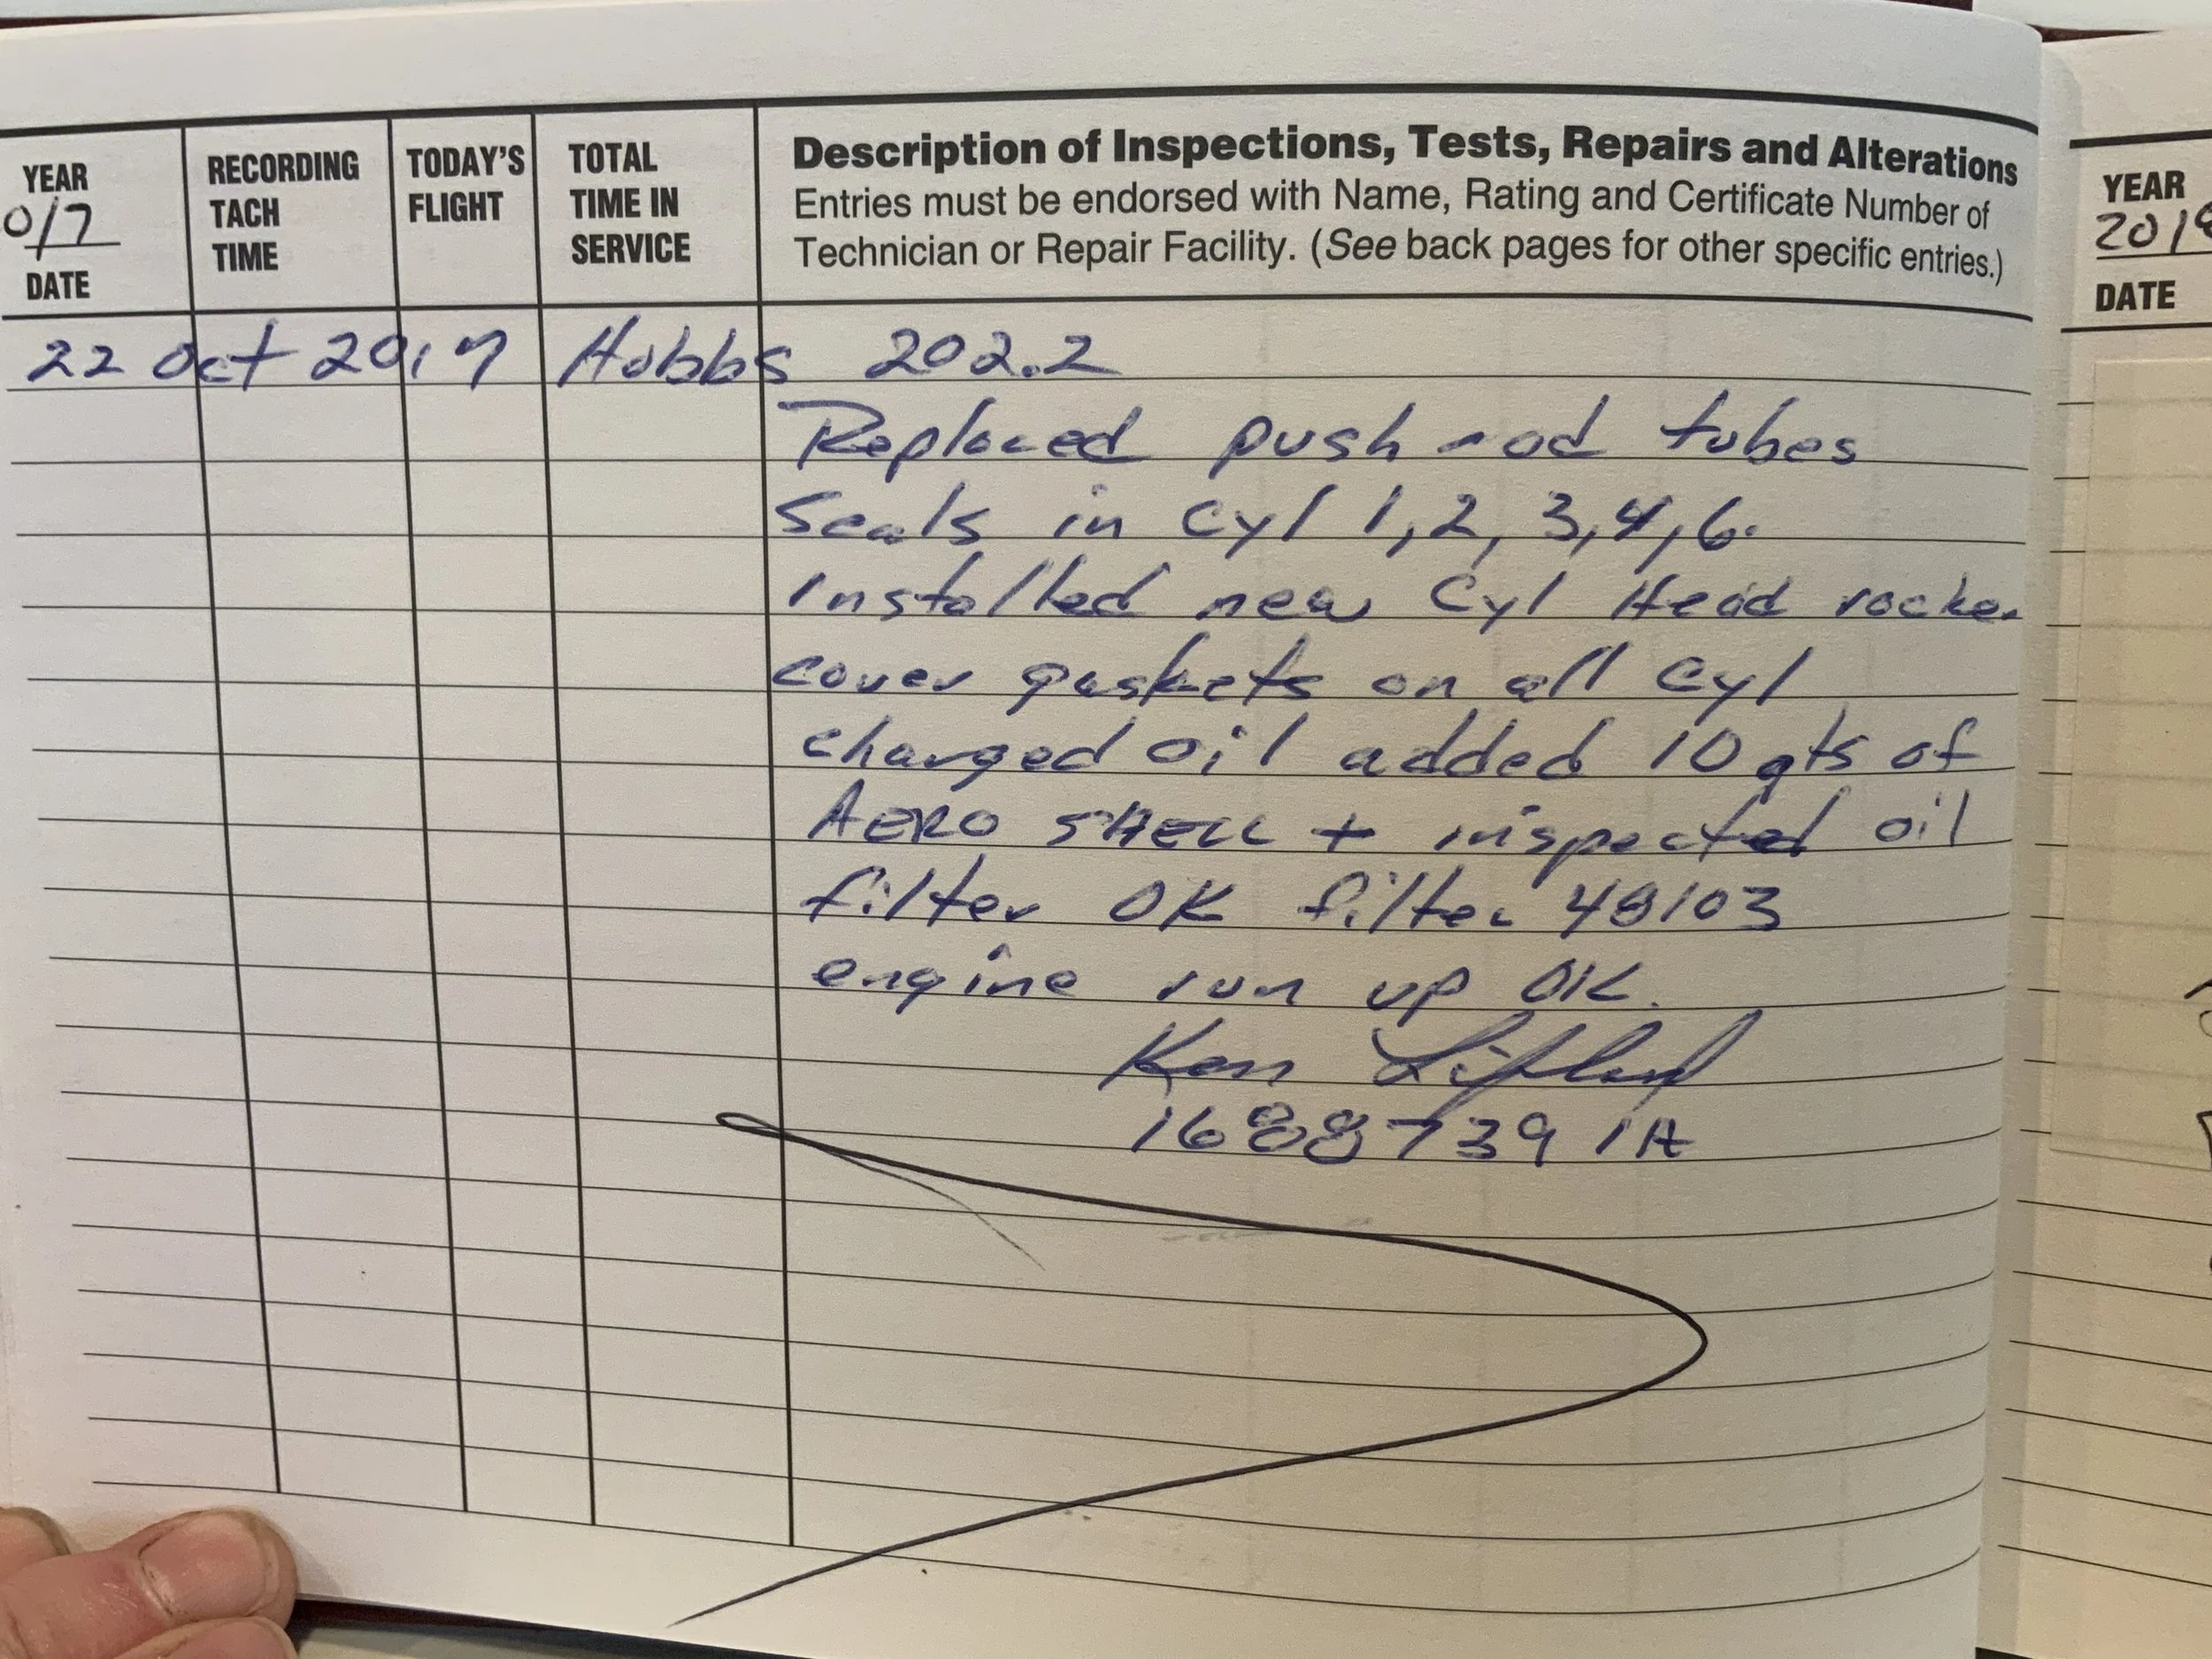 YEAR
0/7
DATE
RECORDING
TACH
TIME
TODAY'S
FLIGHT
TOTAL
TIME IN
SERVICE
Description of Inspections, Tests, Repairs and Alterations
Entries must be endorsed with Name, Rating and Certificate Number of
Technician or Repair Facility. (See back pages for other specific entries.)
22 Oct 2017 Hobbs 202.2
Replaced push rod tubes
Seals in Cyl 1, 2, 3, 4, 6.
Installed new Cyl Head rocker
cover gaskets on all Cyl
changed oil added 10 qts of
AERO SHELL + inspected oil
filter OK filter 48103
engine run up OK.
Ken
1688739 IA
YEAR
2018
DATE